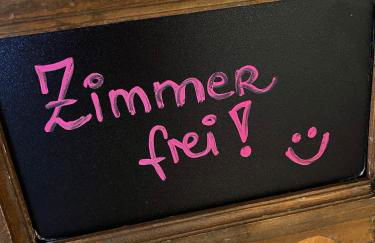 Zimmer
frei!